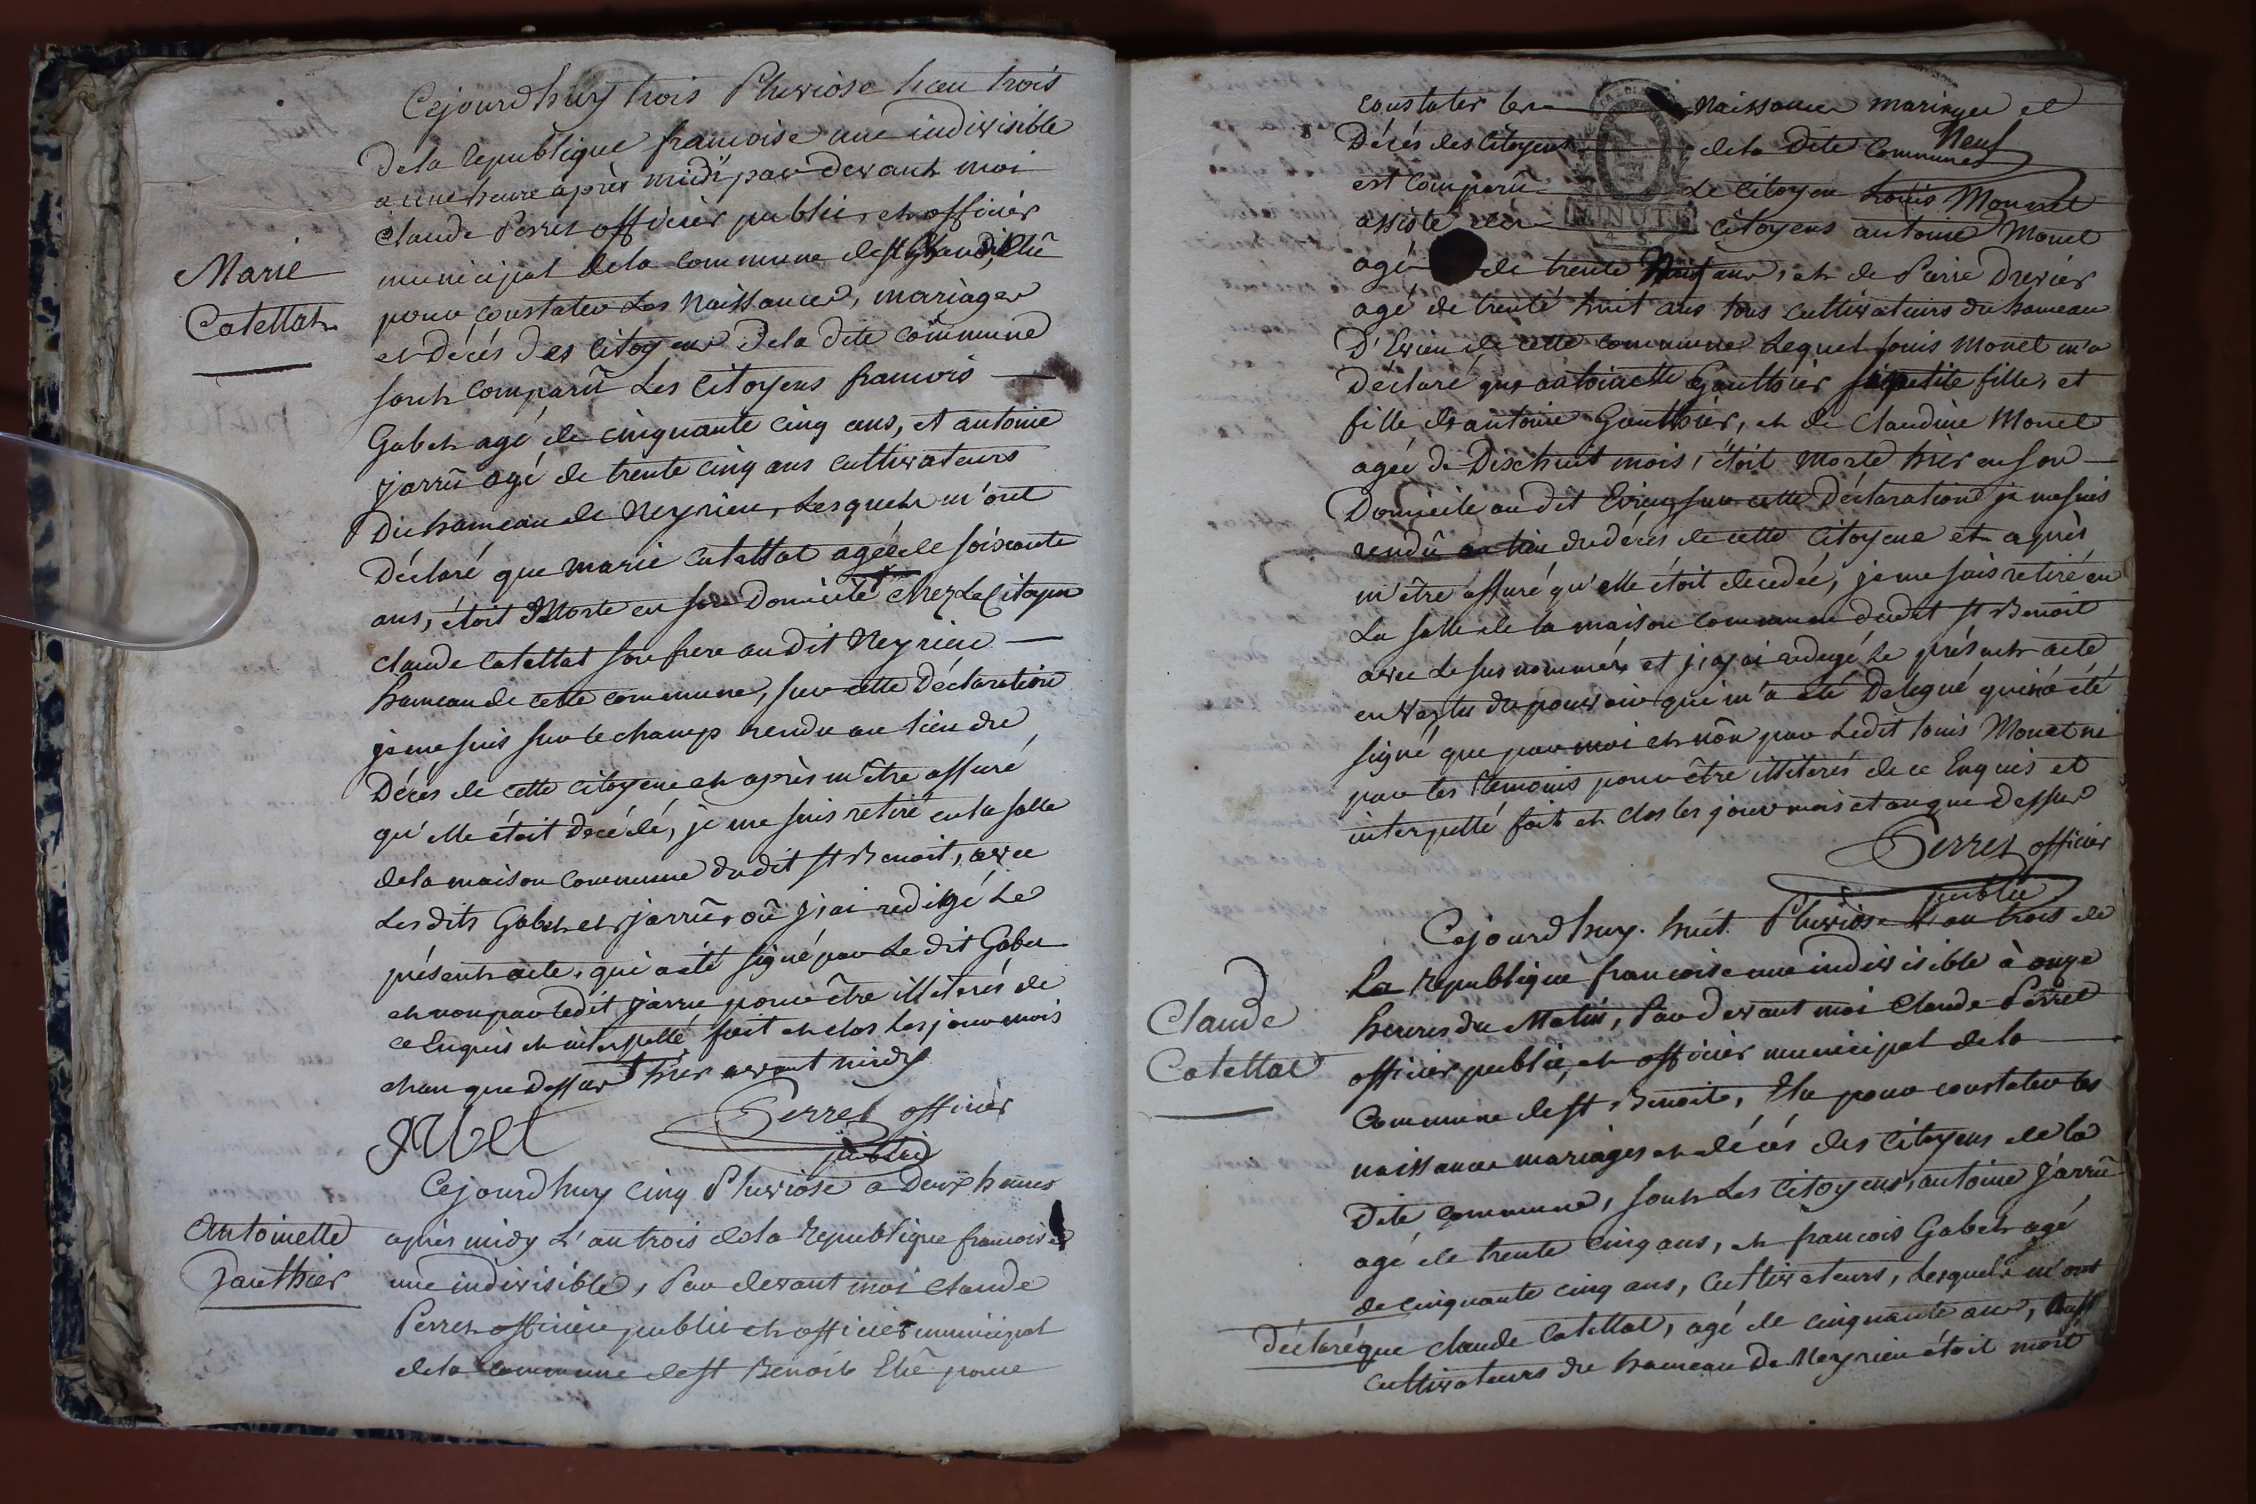 Cejourdhuy trois Pluviose l'an trois
Dela republique francoise une indivisible
a une heure après midi par devant moi
Claude Perret officier public, et officier
municipal dela commune de st Elû
pour constater Les Naissances, mariages
et Décés des Citoyens Dela dite Commune
sont comparû Les Citoyens francois
Gabet agé de cinquante cinq ans, et antoine
jarrû agé de trente cinq ans cultivateurs
Du hameau de Neyrieu, Lesquels m'ont
Déclaré que marie Catettat agée de soixante
ans, étoit Morte en son Domicile chez Le Citoyen
Claude Catettat son frere au Dit Neyrieu
hameau de cette commune, sur cette Déclaration
je me suis sur le champ rendu au lieu du
Décés de cette citoyene et après m'être assuré
qu'elle étoit décédé, je me suis retiré en la salle
dela maison commune dudit st Benoit, avec
Lesdits Gabet et jarrû, où j'ai redigé Le
présent acte, qui a été signé par Le dit Gabet
et non par ledit jarru pour être illiterés de
ce Enquis et interpellé fait et clos les jour mois
et an que dessus hier avant midy
Marie
Catettat
Perret officier
public
Cejourdhuy cinq Pluviose a Deux heures
après midy L'an trois dela Republique francoise
une indivisible, Par devant moi Claude
Perret officier public et officier municipal
dela commune de st Benoit Elû pour
Antoinette
Gauthier
constater les Naissances mariages et
Décés des Citoyens dela Dite Commune
Neuf
est comparû Le Citoyen Louis Monnet
MINUTE
assisté des Citoyens antoine Monet
agé de trente Neuf ans, et de Pierre Drevier
agé de trente huit ans tous cultivateurs du hameau
D'Evieu de cette commune Lequel Louis Monet m'a
Déclaré que antoinette Gauthier sa petite fille, et
fille de antoine Gauthier, et de Claudine Monet
agée de Dixhuit mois, étoit Morte hier en son
Domicile au dit Evieu, sur cette Déclaration je me suis
rendû au lieu du décés de cette Citoyene et après
m'être assuré qu'elle étoit decedée, je me suis retiré en
La salle de la maison commune dudit st Benoit
avec Le susnommés et j'ay redigé Le présent acte
en vertu du pouvoir qui m'a été Delegué qui n'a été
signé que par moi et non par Ledit Louis Monet ni
par les témoins pour être illiterés de ce Enquis et
interpellé fait et clos les jour mois et an que Dessus
Perret officier
public
Cejourdhuy huit Pluviose L'an trois de
La republique francoise une indivisible à onze
heures du Matin, Par Devant moi Claude Perret
officier public, et officier municipal dela
Commune de st Benoit, Elu pour constater les
naissances mariages et décés des Citoyens de la
Dite commune, sont Les Citoyens antoine jarrû
agé de trente cinq ans, et francois Gabet agé
de cinquante cinq ans, Cultivateurs, Lesquels m'ont
Déclaré que Claude Catettat, agé de cinquante ans, aussi
cultivateurs du hameau De Neyrieu étoit mort
Claude
Catettat